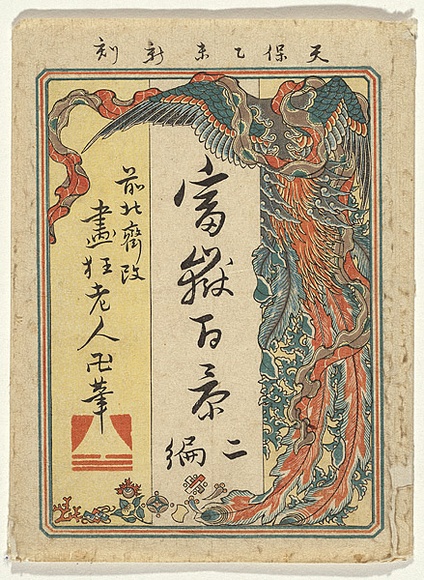 天保乙未新刻
富嶽百景
二編
前北齋改
畫狂老人卍筆